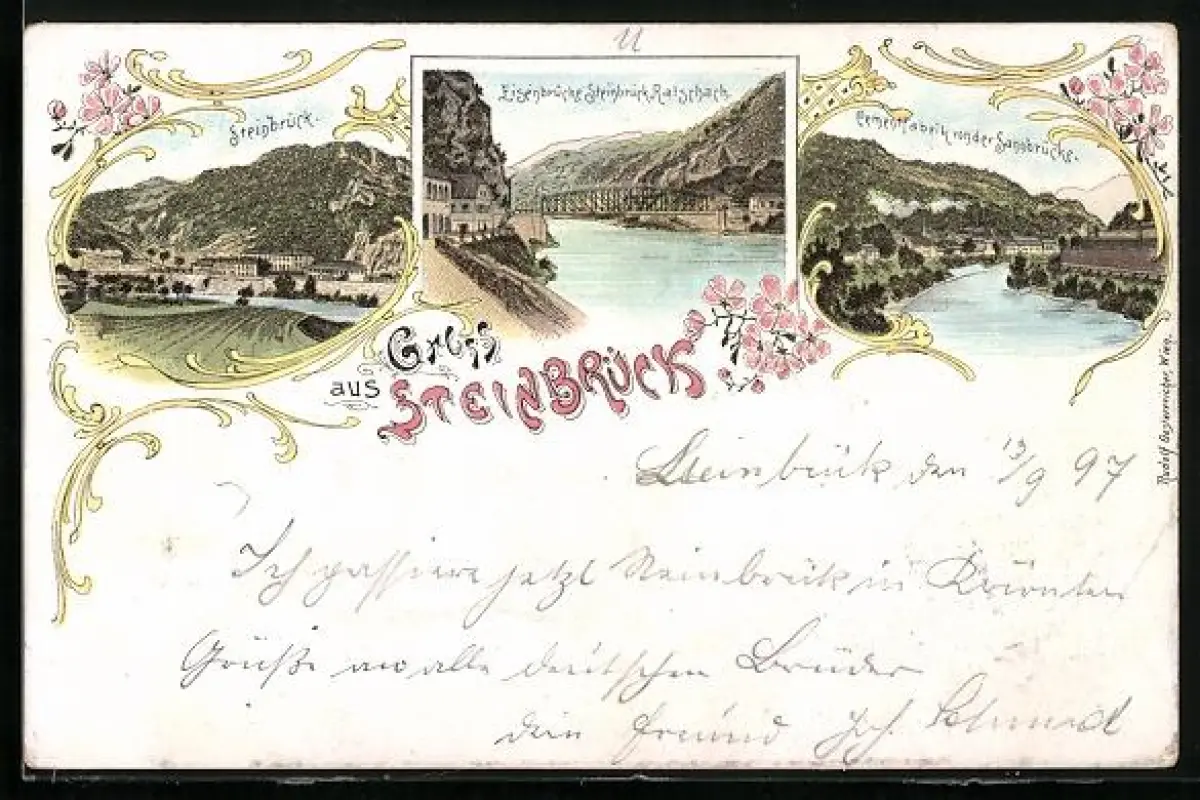 U
Steinbrück.
Eisenbrücke Steinbrück Ratschach
Cementfabrik von der Sannbrücke.
Gruss
aus STEINBRÜCK
Rudolf Oesterreicher, Wien.
Steinbrück den 13/9 97
Ich passiere jetzt Steinbrück in
Grüße an alle deutschen Brüder
dein Freund Joh. Schmid